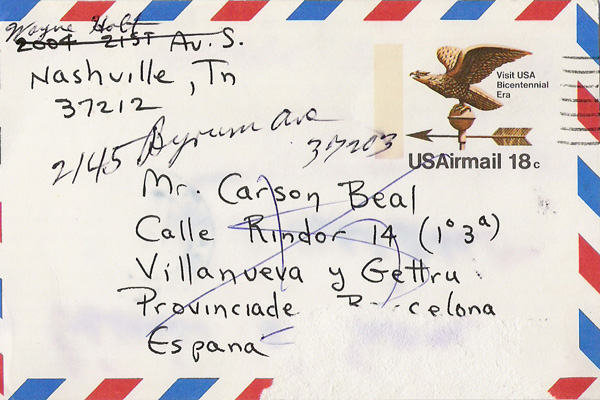 Wayne Holt
2004 21ST Av. S.
Nashville, Tn
37212
2145 Byrum Ave
37203
Visit USA
Bicentennial
Era
USAirmail 18c
Mr. Carson Beal
Calle Rindor 14 (1º 3ª)
Villanueva y Geltru
Provinciade
Espana